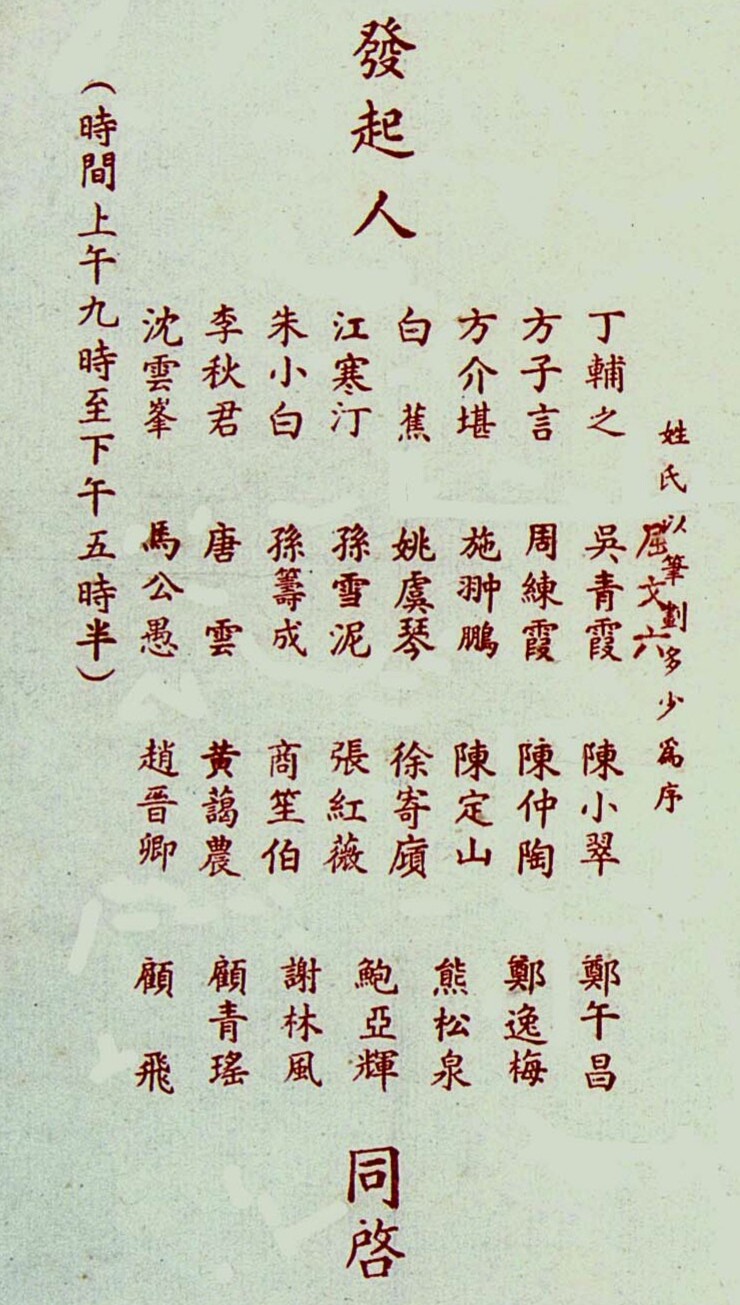 姓氏以筆劃多少為序
屈文六
丁輔之 吳青霞 陳小翠 鄭午昌
方子言 周練霞 陳仲陶 鄭逸梅
方介堪 施翀鵬 陳定山 熊松泉
白蕉 姚虞琴 徐寄廎 鮑亞輝
發起人
江寒汀 孫雪泥 張紅薇 謝林風
朱小白 孫籌成 商笙伯 顧青瑤
李秋君 唐雲 黃藹農 顧飛
沈雲峯 馬公愚 趙晉卿
同啓
(時間上午九時至下午五時半)